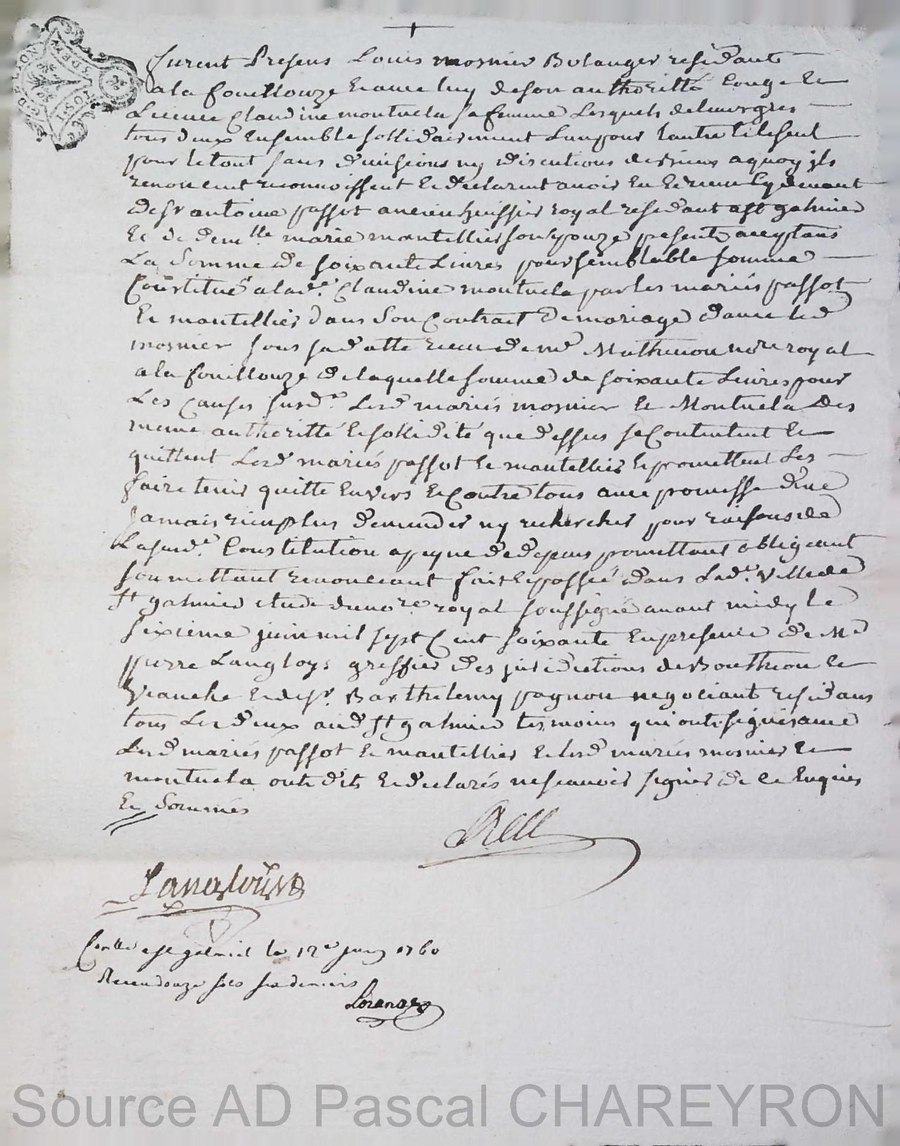 furent presens Louis mosnier Bolanger residant
a la fouillouze Et avec luy de son authoritté Conge Et
Licence Claudine montuela sa femme Lesquels de leurs grés
tous deux Ensemble sollidairement Lun pour Lautre Et le seul
pour le tout sans divisions ny discutions desquels a quoy ils
renoncent reconnoissent Et declarent avoir Eu Et receu Cy devant
de sr antoine passot ancien huissier royal residant a st galmier
Et de demlle marie mantellier son Epouze presents acceptans
La Somme de soixante Livres pour semblable somme
Constituée a lad. Claudine montuela par les mariés passot
Et mantellier dans Son Contrat de mariage d'avec led
mosnier sous sa datte receu de me Mathevon nore royal
a la fouillouze de laquelle somme de soixante Livres pour
Les Causes susd. Lesd mariés mosnier Et Montuela Des
meme authoritté Et sollidité que dessus se Contentent Et
quittent Lesd mariés passot Et mantellier Et promettent Les
faire tenir quitte Envers Et Contre tous avec promesse d'ene
Jamais rien plus demander ny rechercher pour raisons de
La susd. Constitution a peyne de depens promettans obligeant
soumettant renonciant fait Et passé dans Lad. Ville de
St galmier Etude du nore royal soussigné avant midy le
sixieme juin mil sept Cent soixante En presence de Me
pierre Langloys greffier des juridictions de Bouthion Et
Vranche Et de sr. Barthelemy pagnon negociant residans
tous Les deux aud St galmier tesmoins qui ont signé avec
Lesd mariés passot Et mantellier Et lesd mariés mosnier Et
montuela ont dit Et declarés ne scavoir signer de ce Enquis
Et Sommés
Langloys
Conllé a st galmier le 12e juin 1760
Receu douze sols six deniers
Source AD Pascal CHAREYRON